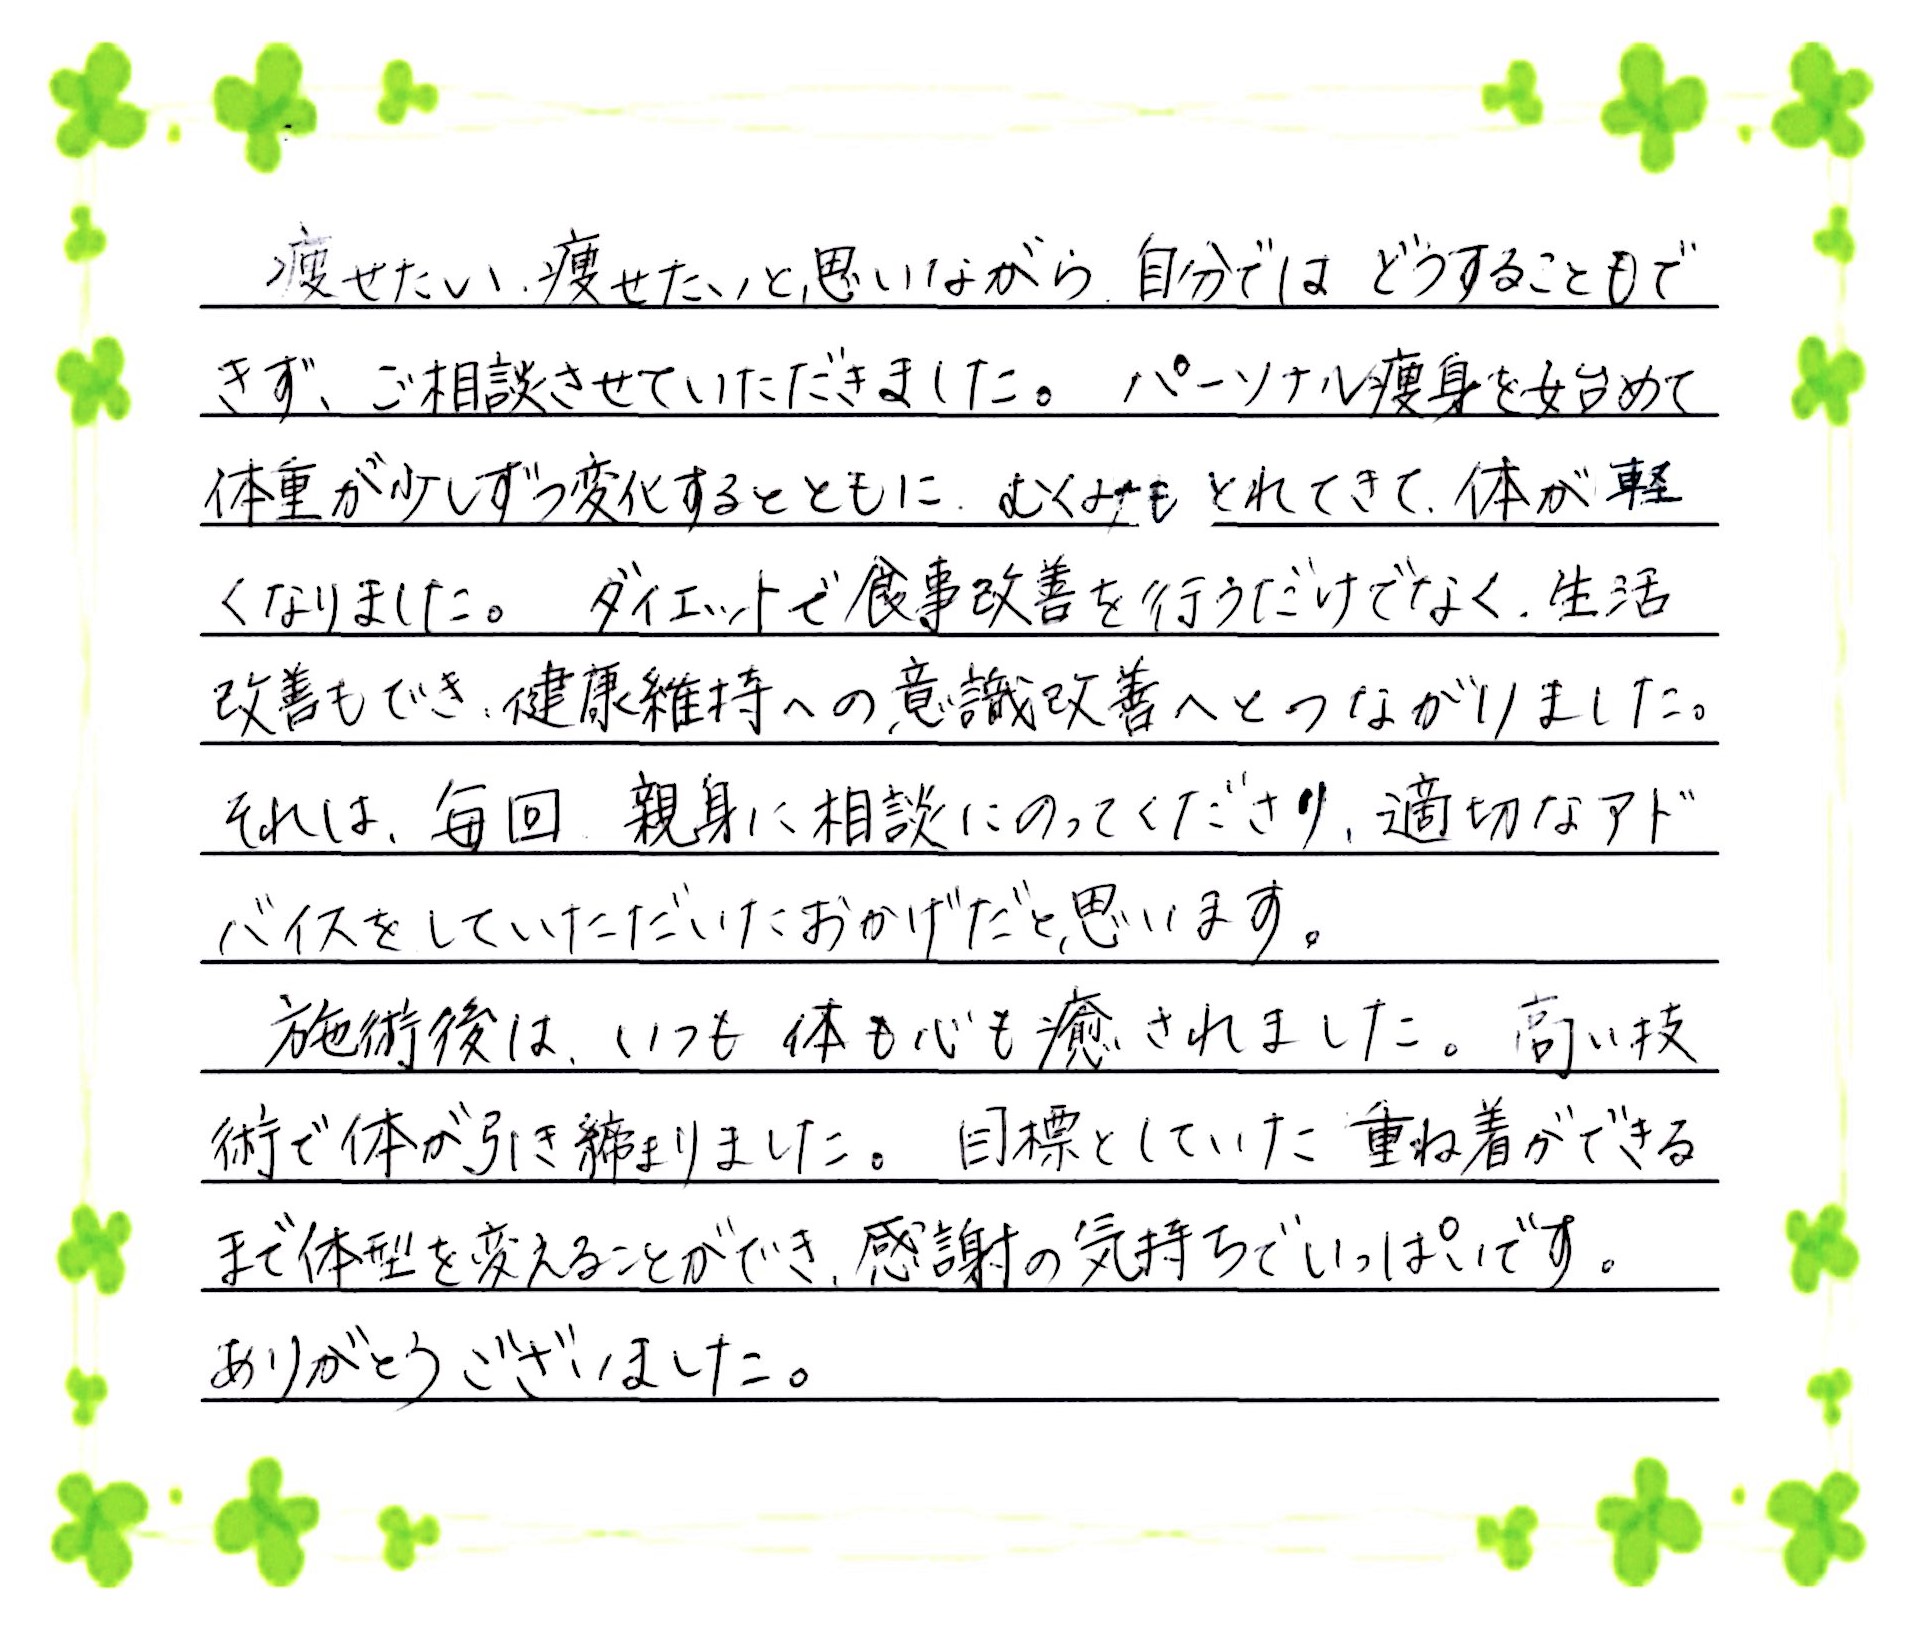 痩せたい、痩せたいと思いながら、自分ではどうすることもで
きず、ご相談させていただきました。パーソナル痩身を始めて
体重が少しずつ変化するとともに、むくみもとれてきて、体が軽
くなりました。ダイエットで食事改善を行うだけでなく、生活
改善もでき、健康維持への意識改善へとつながりました。
それは、毎回、親身に相談にのってくださり、適切なアド
バイスをしていただいたおかげだと思います。
施術後は、いつも体も心も癒されました。高い技
術で体が引き締まりました。目標としていた重ね着ができる
まで体型を変えることができ、感謝の気持ちでいっぱいです。
ありがとうございました。